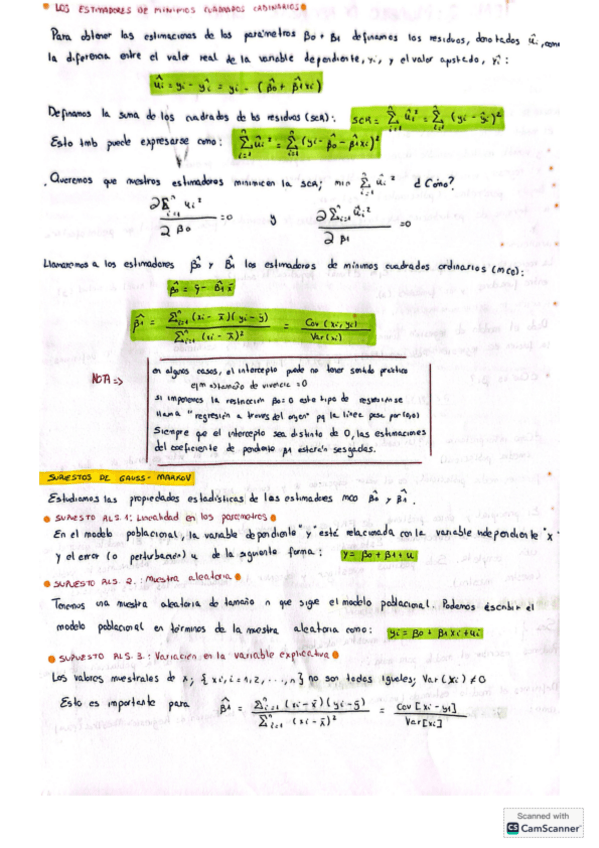 LOS ESTIMADORES DE MINIMOS CUADRADOS ORDINARIOS
Para obtener las estimaciones de los parámetros β0 + β1 definamos los residuos, denotados ûi, como
la diferencia entre el valor real de la variable dependiente, yi, y el valor ajustado, ŷi:
ûi = yi - ŷi = yi - (β̂0 + β̂1xi)
Definamos la suma de los cuadrados de los residuos (SCR): SCR = Σⁿᵢ₌₁ ûi² = Σⁿᵢ₌₁ (yi - ŷi)²
Esto tmb puede expresarse como: Σⁿᵢ₌₁ ûi² = Σⁿᵢ₌₁ (yi - β̂0 - β̂1xi)²
Queremos que nuestros estimadores minimicen la SCR; min Σⁿᵢ₌₁ ûi² ¿Cómo?
∂Σⁿᵢ₌₁ ui² / ∂β0 = 0 y ∂Σⁿᵢ₌₁ ûi² / ∂β1 = 0
Llamaremos a los estimadores β̂0 y β̂1 los estimadores de mínimos cuadrados ordinarios (mco):
β̂0 = ȳ - β̂1x̄
β̂1 = Σⁿᵢ₌₁ (xi - x̄)(yi - ȳ) / Σⁿᵢ₌₁ (xi - x̄)² = Cov (xi, yi) / Var (xi)
NOTA =>
en algunos casos, el intercepto puede no tener sentido práctico
ejm: tamaño de vivencia = 0
si imponemos la restricción β0 = 0 este tipo de regresión se
llama "regresión a través del origen" pq la línea pasa por (0,0)
Siempre que el intercepto sea distinto de 0, las estimaciones
del coeficiente de pendiente β1 estarán sesgadas.
SUPUESTOS DE GAUSS-MARKOV
Estudiamos las propiedades estadísticas de los estimadores mco β̂0 y β̂1.
SUPUESTO RLS. 1: Linealidad en los parámetros
En el modelo poblacional, la variable dependiente "y" esté relacionada con la variable independiente "x"
y el error (o perturbación) u de la siguiente forma: y = β0 + β1 + u
SUPUESTO RLS. 2.: Muestra aleatoria
Tenemos una muestra aleatoria de tamaño n que sigue el modelo poblacional. Podemos escribir el
modelo poblacional en términos de la muestra aleatoria como: yi = β0 + β1xi + ui
SUPUESTO RLS. 3.: Variación en la variable explicativa
Los valores muestrales de x, {xi, i=1,2,...,n} no son todos iguales; Var (xi) ≠ 0
Esto es importante para β̂1 = Σⁿᵢ₌₁ (xi - x̄)(yi - ȳ) / Σⁿᵢ₌₁ (xi - x̄)² = Cov [xi - yi] / Var [xi]
Scanned with
CS CamScanner